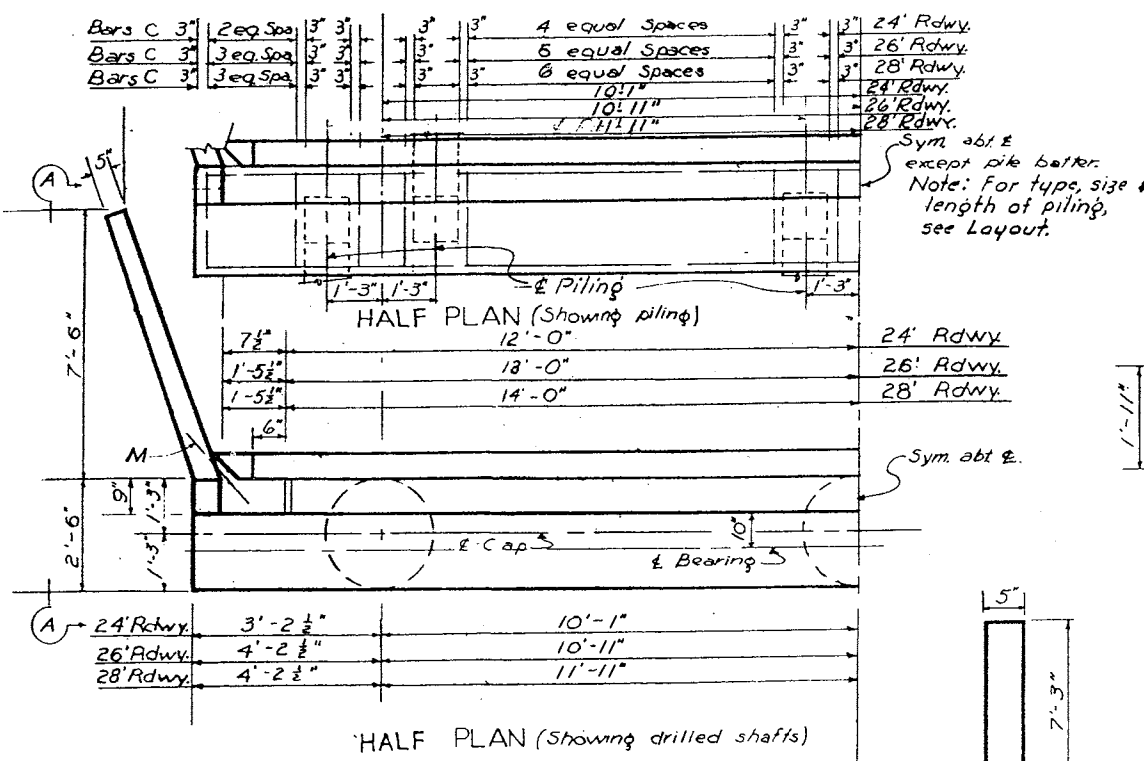 Bars C 3" 2 eq. Spa. 3" 3" 3" 4 equal Spaces 3" 3" 24' Rdwy.
Bars C 3" 3 eq. Spa. 3" 3" 3" 5 equal Spaces 3" 3" 26' Rdwy.
Bars C 3" 3 eq. Spa. 3" 3" 3" 3" 6 equal Spaces 3" 3" 28' Rdwy.
10'-1" 24' Rdwy.
10'-11" 26' Rdwy.
11'-11" 28' Rdwy.
Sym. abt. ℄
except pile batter.
Note: For type, size &
length of piling,
see Layout.
A
5"
℄ Piling
1'-3" 1'-3" 1'-3"
HALF PLAN (Showing piling)
7'-6"
7½" 12'-0" 24' Rdwy.
1'-5½" 13'-0" 26' Rdwy.
1'-5½" 14'-0" 28' Rdwy.
1'-11"
6"
M
Sym. abt ℄.
9"
1'-3"
2'-6"
1'-3"
10"
℄ Cap
℄ Bearing
A
24' Rdwy. 3'-2½" 10'-1"
26' Rdwy. 4'-2½" 10'-11"
28' Rdwy. 4'-2½" 11'-11"
5"
7'-3"
HALF PLAN (Showing drilled shafts)